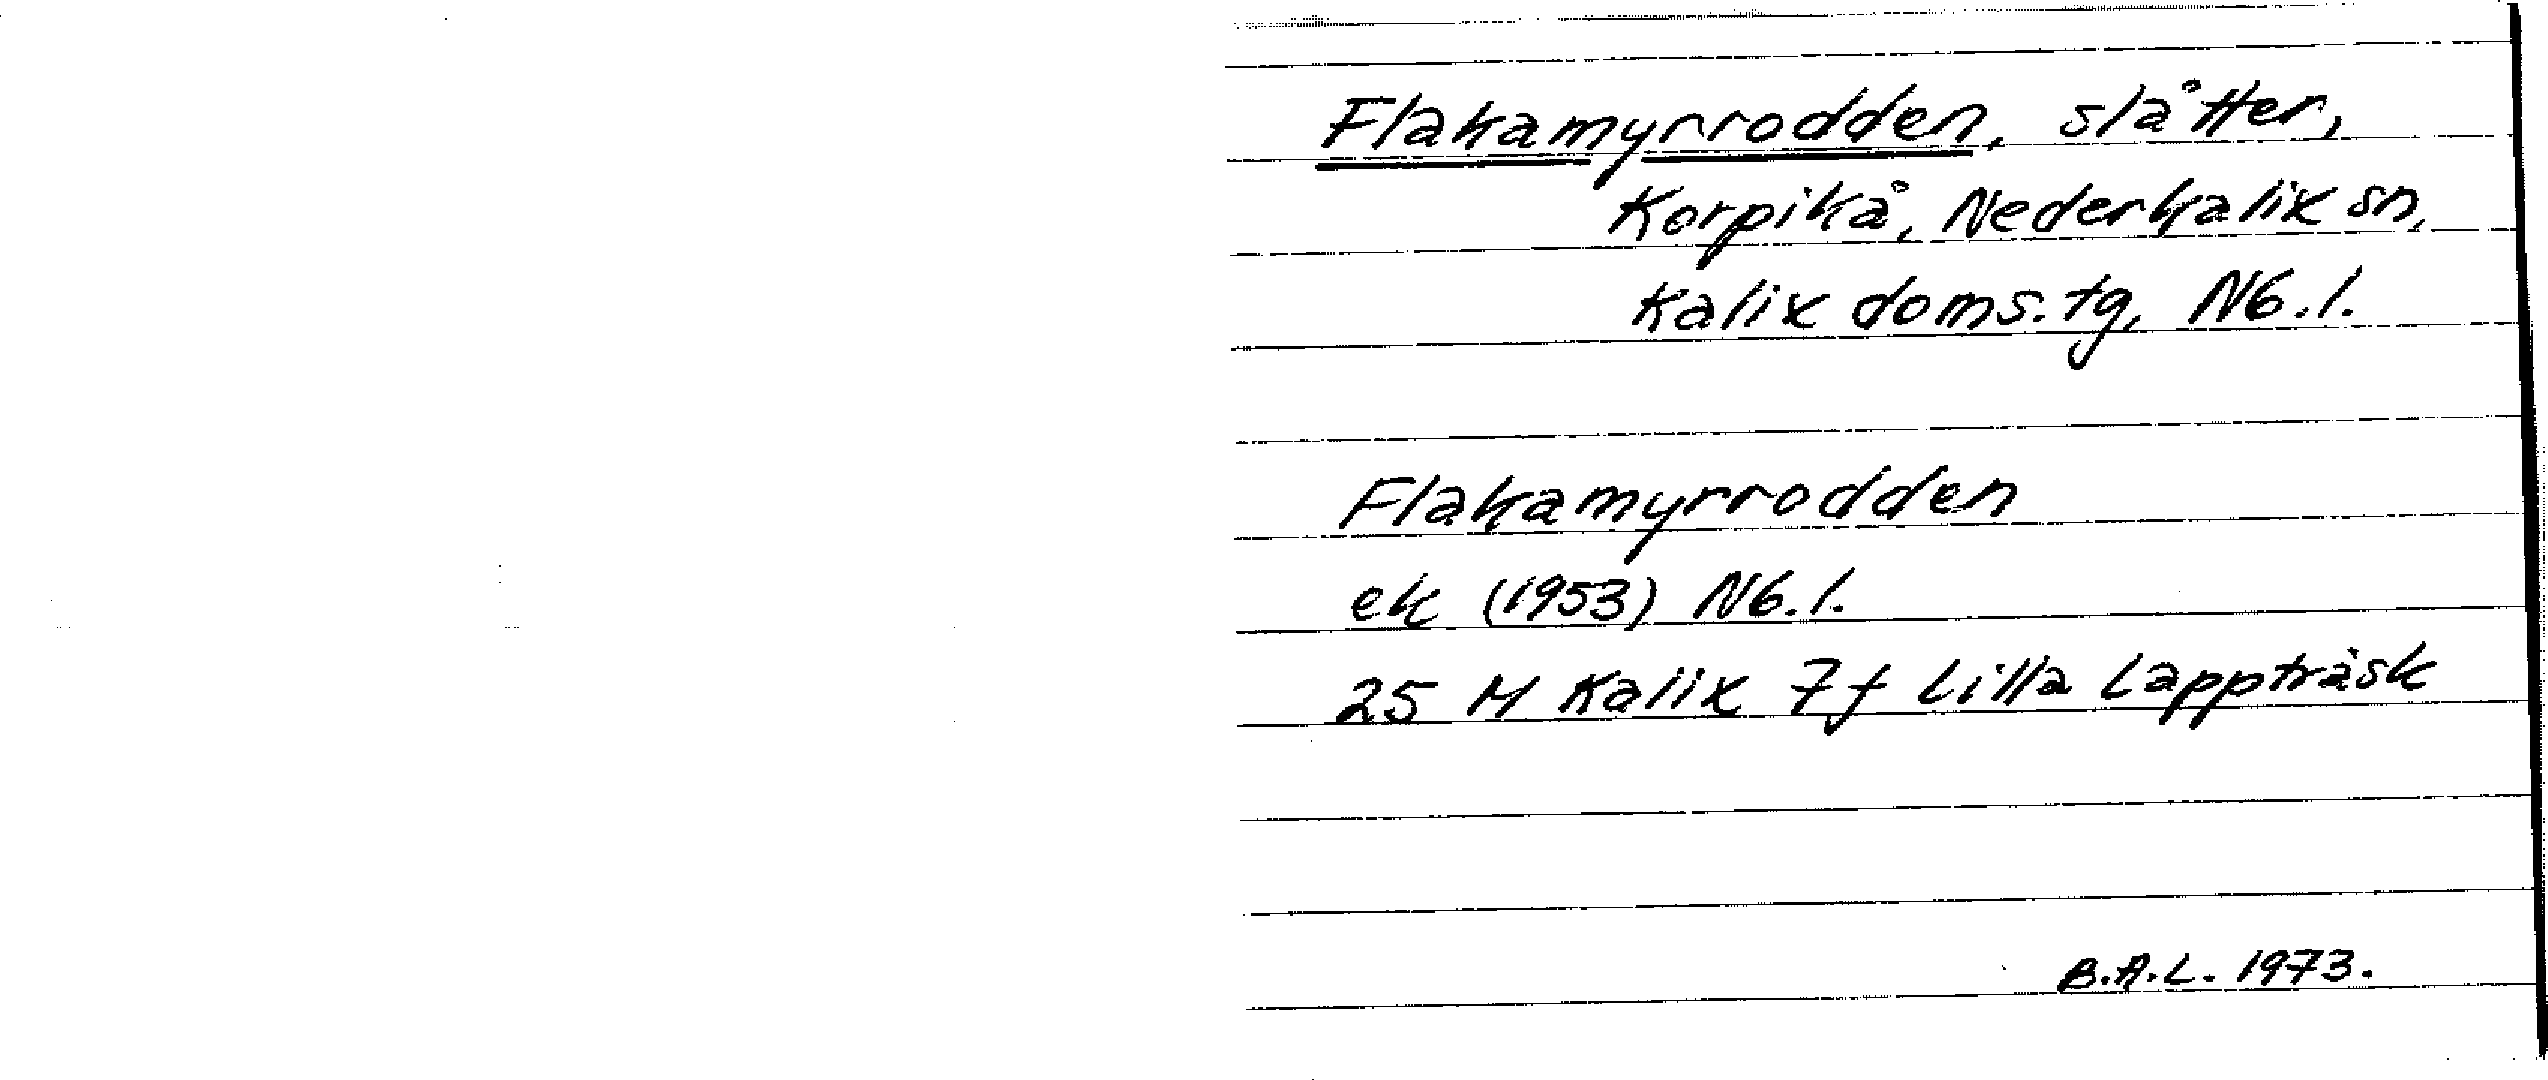 Flakamyrrodden, slåtter,
Korpikå, Nederkalix sn,
Kalix doms. tg, Nb. l.
Flakamyrrodden
ek (1953) Nb. l.
25 M Kalix 7f Lilla Lappträsk
B.A.L. 1973.